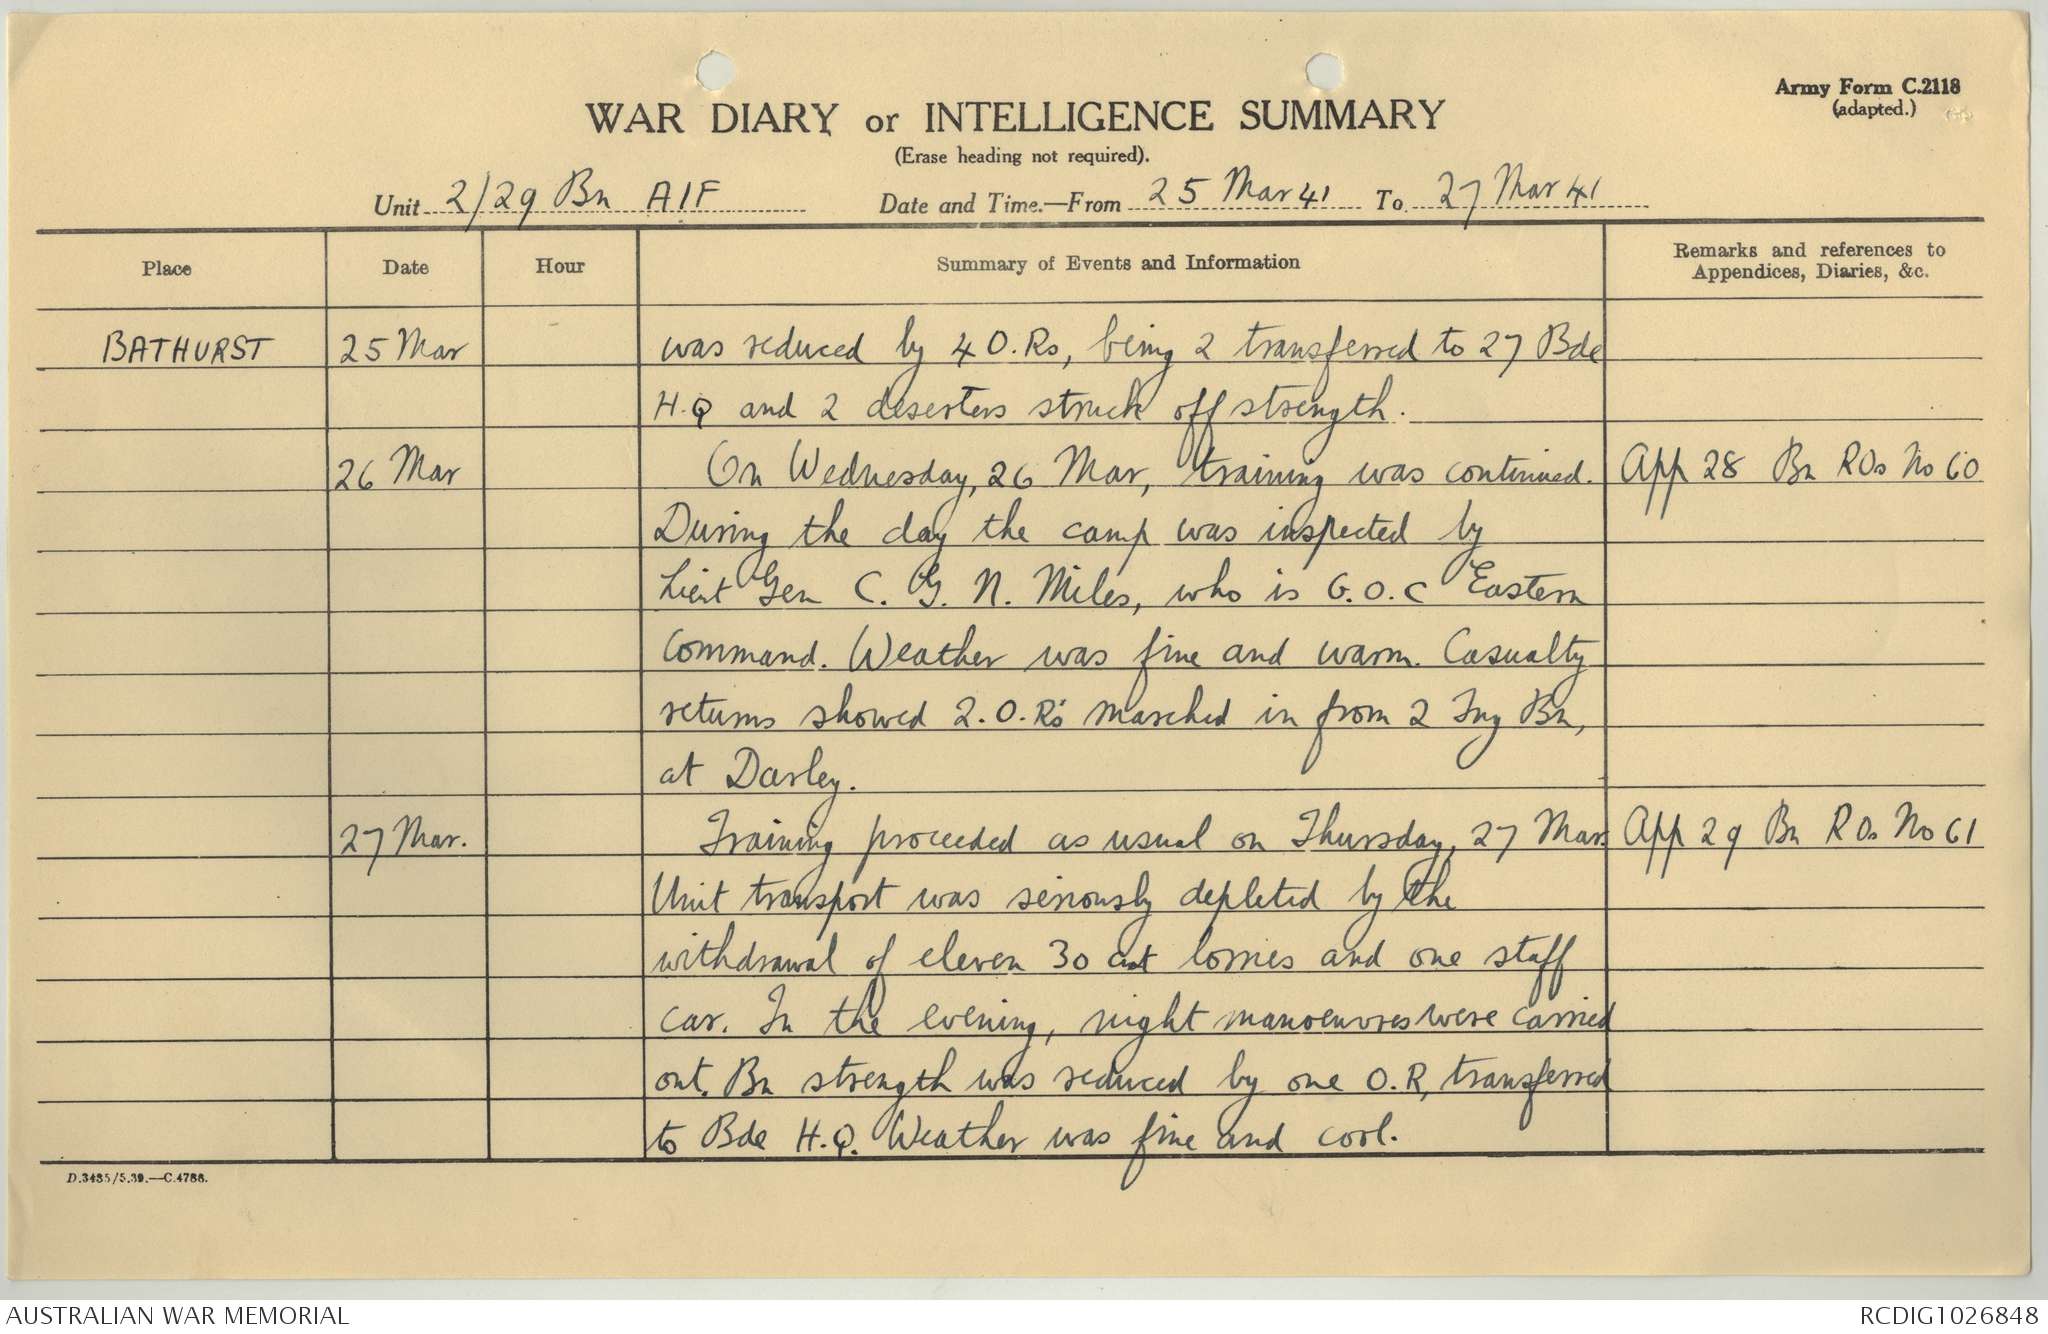 Army Form C.2118
(adapted.)
WAR DIARY or INTELLIGENCE SUMMARY
(Erase heading not required).
Unit 2/29 Bn AIF Date and Time.—From 25 Mar 41 To 27 Mar 41
Place Date Hour Summary of Events and Information Remarks and references to Appendices, Diaries, &c.
BATHURST 25 Mar was reduced by 4 O.Rs, being 2 transferred to 27 Bde
H.Q and 2 deserters struck off strength.
26 Mar On Wednesday, 26 Mar, training was continued. App 28 Bn ROs No 60
During the day the camp was inspected by
Lieut Gen C. G. N. Miles, who is G.O.C Eastern
Command. Weather was fine and warm. Casualty
returns showed 2.O.Rs marched in from 2 Tng Bn,
at Darley.
27 Mar. Training proceeded as usual on Thursday, 27 Mar. App 29 Bn ROs No 61
Unit transport was seriously depleted by the
withdrawal of eleven 30 cwt lorries and one staff
car. In the evening, night manoeuvres were carried
out. Bn strength was reduced by one O.R, transferred
to Bde H.Q. Weather was fine and cool.
D.3485/5.39.—C.4788.
AUSTRALIAN WAR MEMORIAL RCDIG1026848